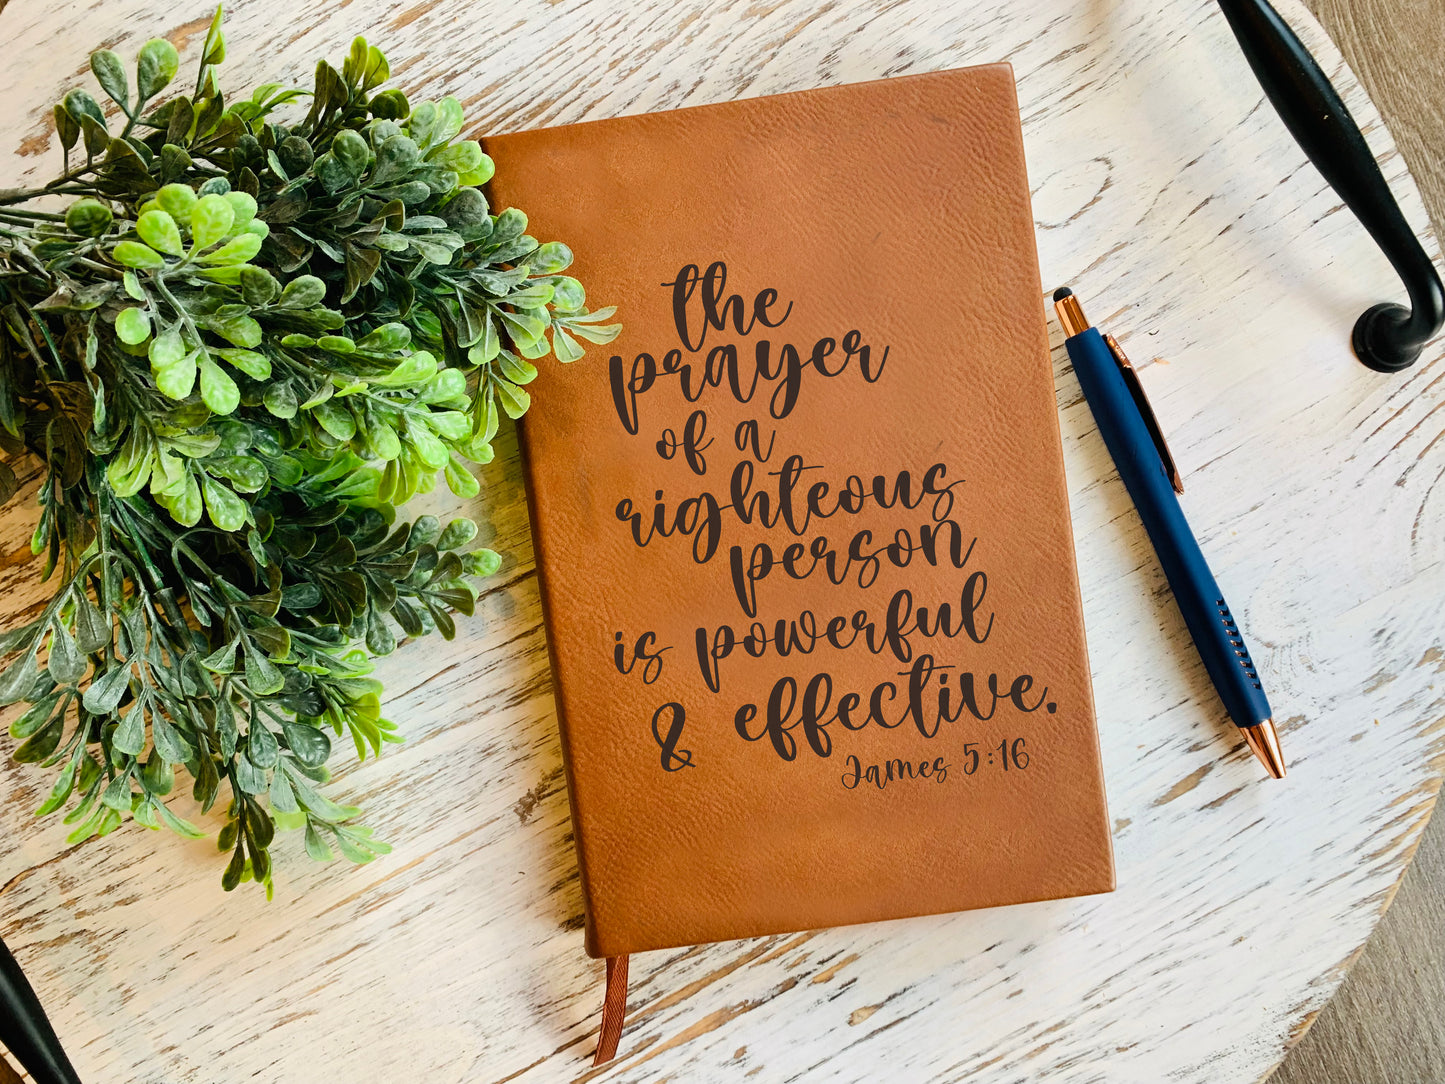 the
prayer
of a
righteous
person
is powerful
& effective.
James 5:16